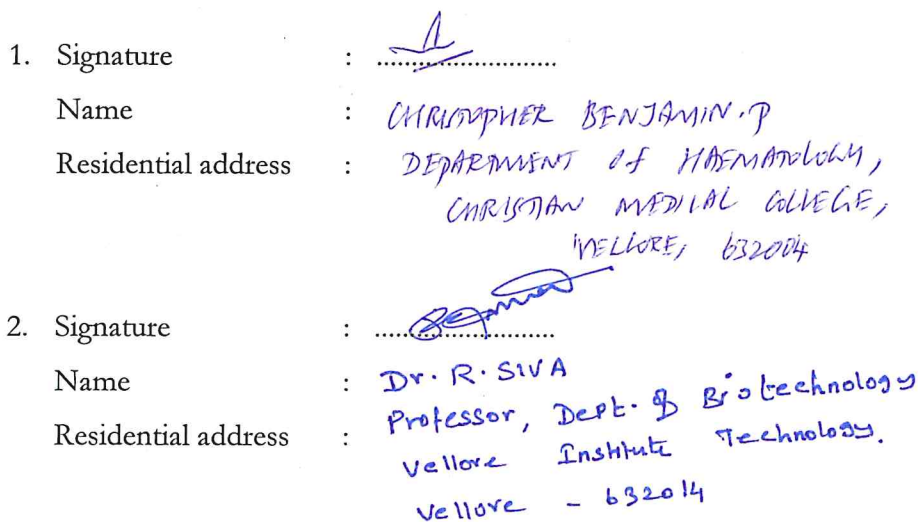 1. Signature : ....................
Name : CHRISTOPHER BENJAMIN.P
Residential address : DEPARTMENT of HAEMATOLOGY,
CHRISTIAN MEDICAL COLLEGE,
VELLORE, 632004
2. Signature : ....................
Name : Dr. R. SIVA
Residential address : Professor, Dept. of Biotechnology
Vellore Institute Technology.
Vellore - 632014